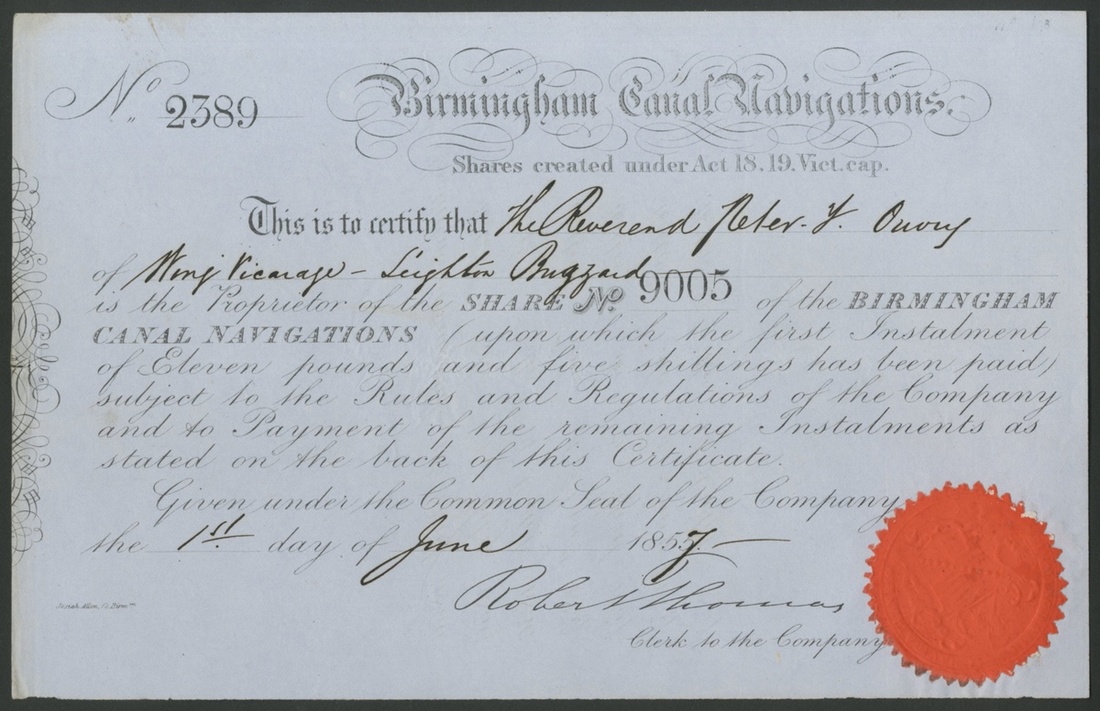 No 2389
Birmingham Canal Navigations.
Shares created under Act 18.19. Vict. cap.
This is to certify that The Reverend Peter. T. Ouvry
of Wing Vicarage - Leighton Buzzard
is the Proprietor of the SHARE No. 9005 of the BIRMINGHAM
CANAL NAVIGATIONS (upon which the first Instalment
of Eleven pounds and five shillings has been paid)
subject to the Rules and Regulations of the Company
and to Payment of the remaining Instalments as
stated on the back of this Certificate.
Given under the Common Seal of the Company
the 1st day of June 1857. —
Robert Thomas
Clerk to the Company
Josiah Allen,